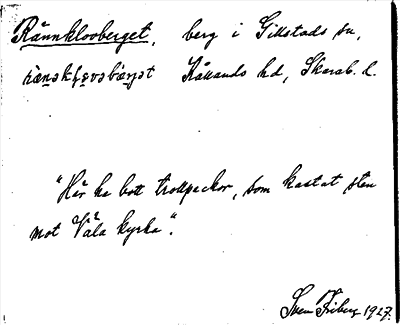 Rännklovberget, berg i Gillstads sn,
Kållands hd, Skarab. l.
"Här ha bott trollpackor, som kastat sten
mot Våla kyrka".
Sven Friberg 1927.